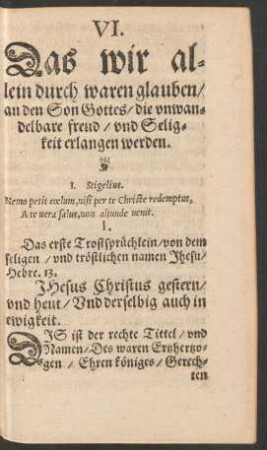 VI.
Das wir al-
lein durch waren glauben/
an den Son Gottes/die vnwan-
delbare freud/vnd Selig-
keit erlangen werden.
I. Stigelius.
Nemo petit cœlum, nisi per te Christe redemptus,
A te uera salus, non aliunde uenit.
I.
Das erste Trostsprüchlein/von dem
seligen/vnd tröstlichen namen Jhesu/
Hebre. 13.
JHesus Christus gestern/
vnd heut/Vnd derselbig auch in
ewigkeit.
DJS ist der rechte Tittel/vnd
Namen/Des waren Ertzhertzo-
gen/Ehren königes/Gerech-
ten